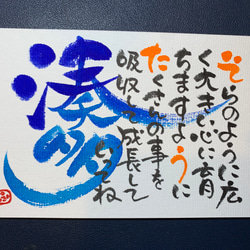 そらのように広
く大きい心に育
ちますように
たくさんの事を
吸収して成長して
いってね
湊多